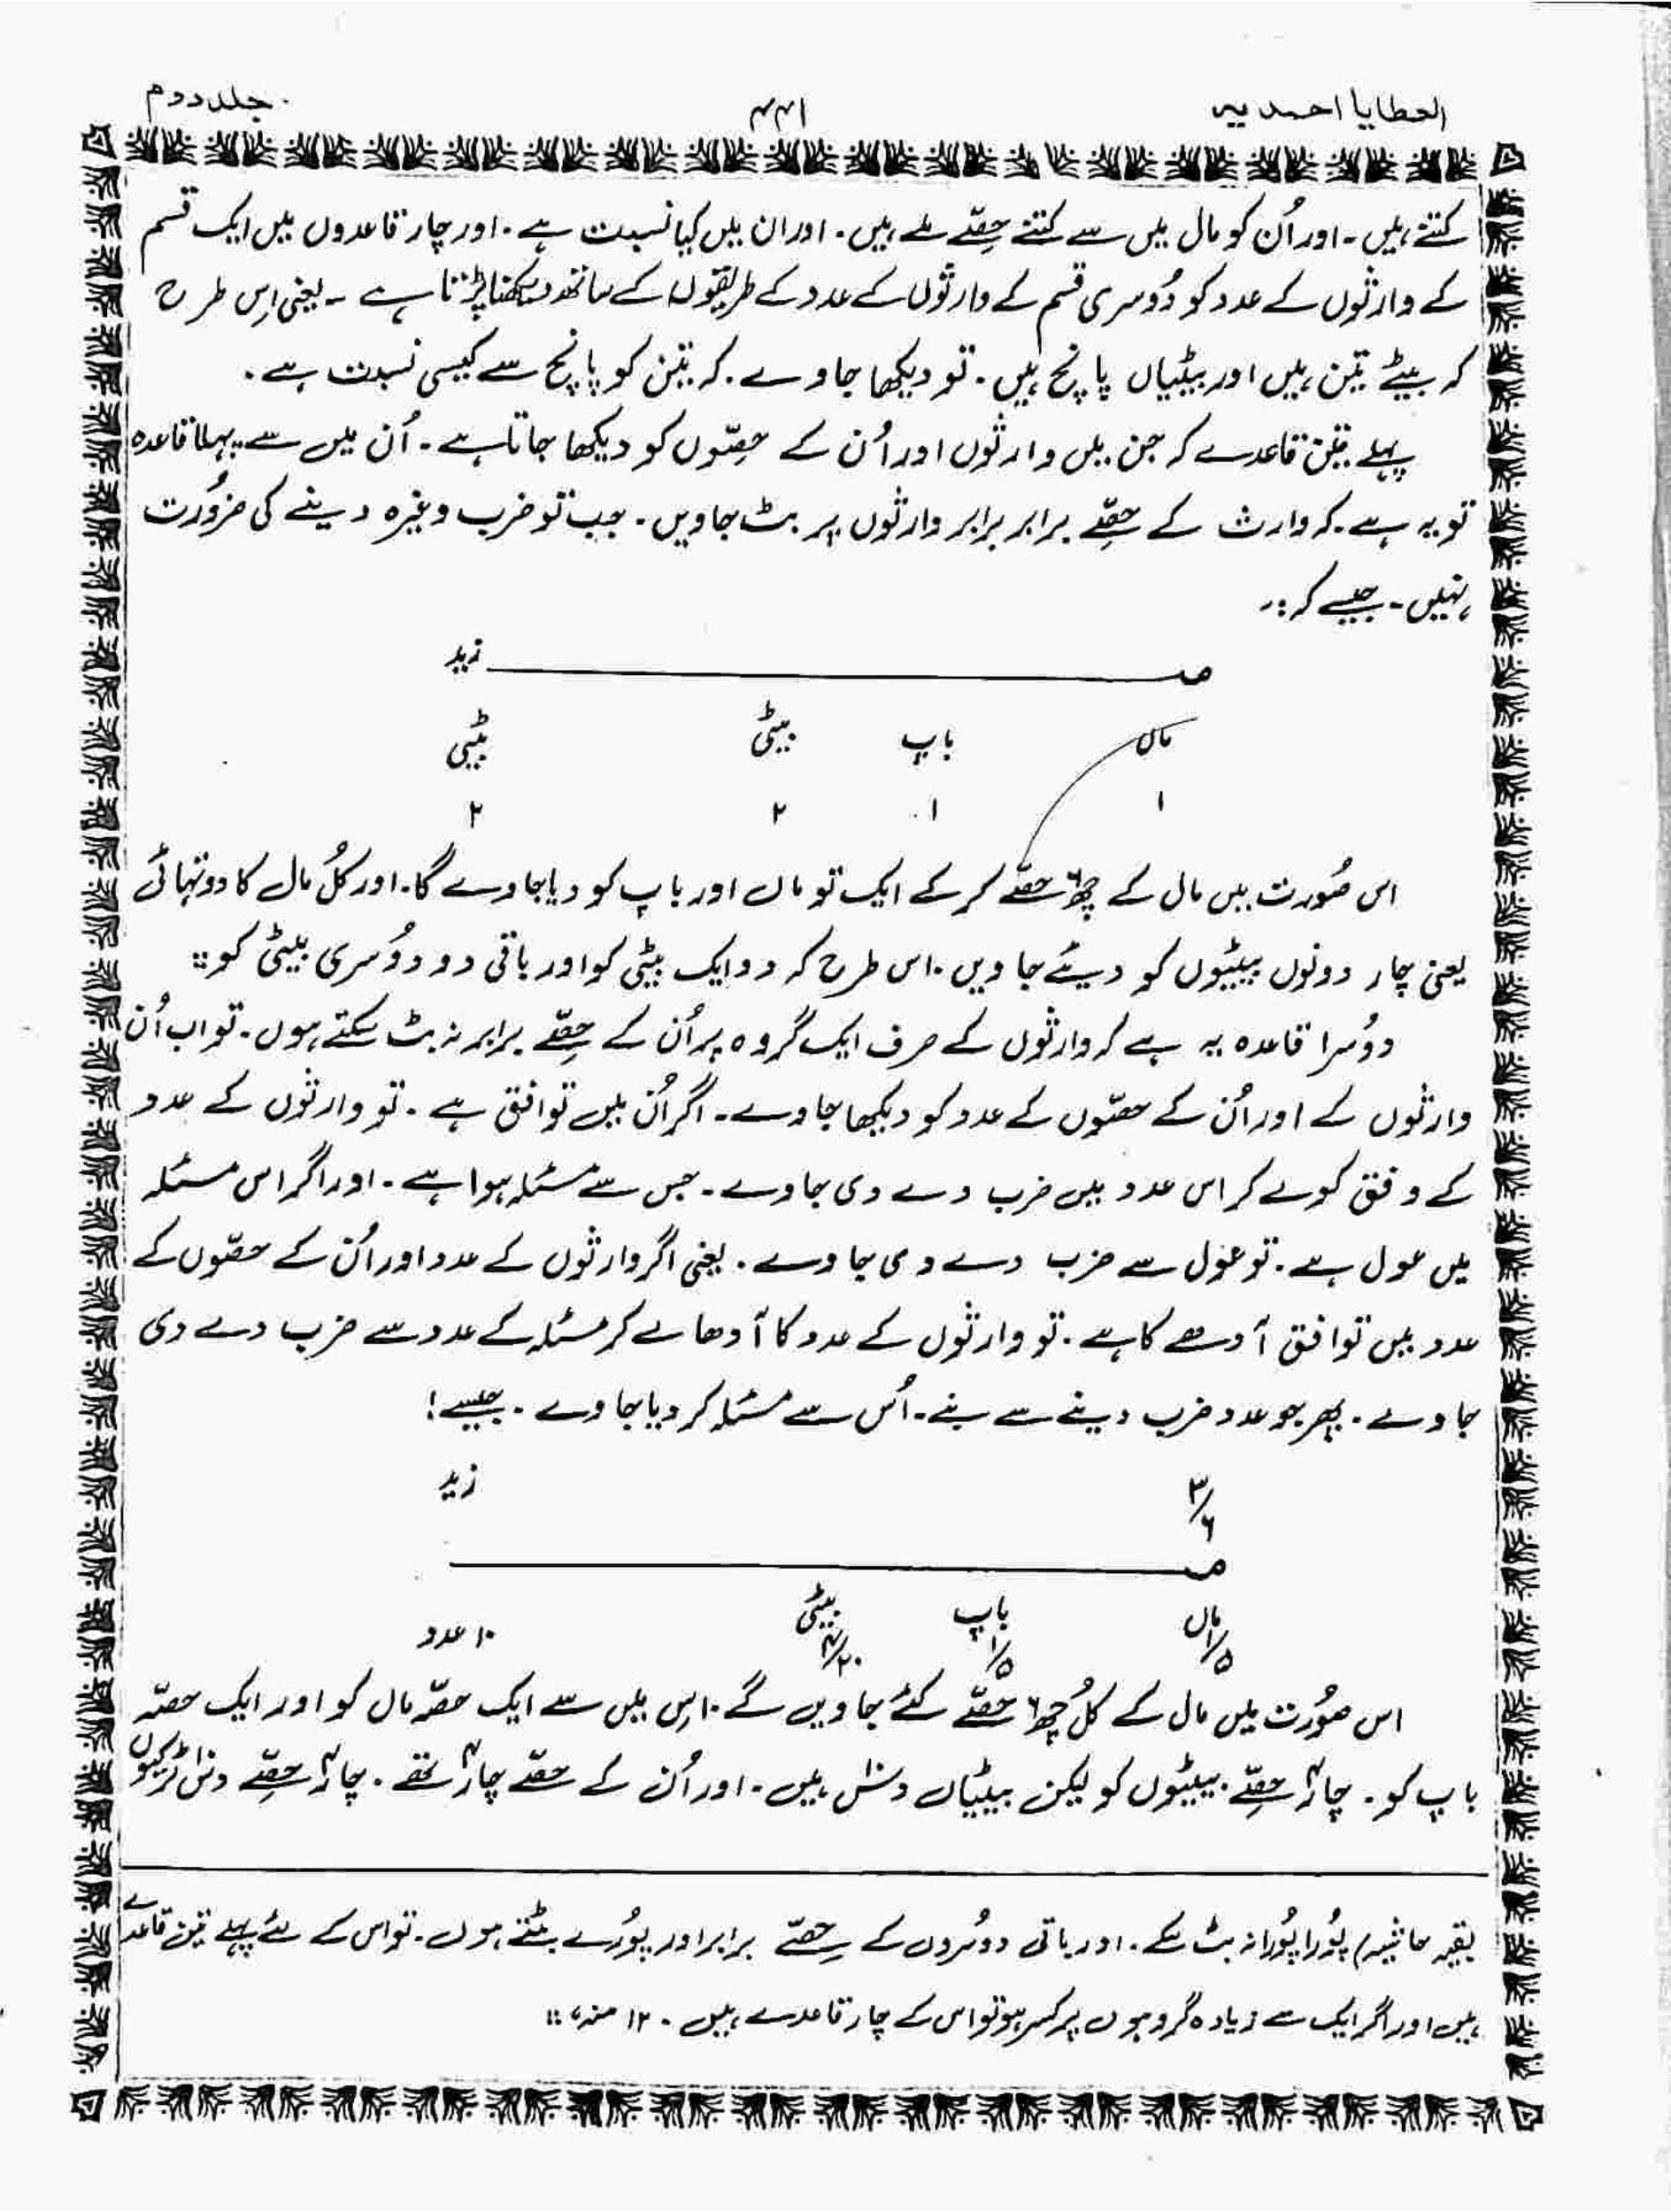 العطایا احمدیہ ۴۴۱ جلد دوم
کتنے ہیں۔ اور اُن کو مال میں سے کتنے حِصّے ملے ہیں۔ اور ان میں کیا نسبت ہے۔ اور چار قاعدوں میں ایک قسم
کے وارثوں کے عدد کو دُوسری قسم کے وارثوں کے عدد کے طریقوں کے ساتھ دیکھنا پڑتا ہے ۔ یعنی اِس طرح
کہ بیٹے تین ہیں اور بیٹیاں پانچ ہیں۔ تو دیکھا جاوے۔ کہ تین کو پانچ سے کیسی نسبت ہے۔
پہلے تین قاعدے کہ جن میں وارثوں اور اُن کے حِصّوں کو دیکھا جاتا ہے۔ اُن میں سے پہلا قاعدہ
تو یہ ہے۔ کہ وارث کے حِصّے برابر برابر وارثوں پر بٹ جاویں۔ جب تو ضرب وغیرہ دینے کی ضرُورت
نہیں۔ جیسے کہ:۔
مـــــــــــ زید
ماں باپ بیٹی بیٹی
۱ ۱ ۲ ۲
اس صُورت میں مال کے چھ۶ حصّے کر کے ایک تو ماں اور باپ کو دیا جاوے گا۔ اور کُل مال کا دو تہائی
یعنی چار دونوں بیٹیوں کو دیئے جاویں۔ اس طرح کہ دو ایک بیٹی کو اور باقی دو دوُسری بیٹی کو ::
دوُسرا قاعدہ یہ ہے کہ وارثوں کے صرف ایک گروہ پر اُن کے حِصّے برابر نہ بٹ سکتے ہوں۔ تو اب اُن
وارثوں کے اور اُن کے حصّوں کے عدد کو دیکھا جاوے۔ اگر اُن میں توافق ہے۔ تو وارثوں کے عدد
کے وفق کو لے کر اس عدد میں ضرب دے دی جاوے۔ جس سے مسئلہ ہوا ہے۔ اور اگر اس مسئلہ
میں عول ہے۔ تو عول سے ضرب دے دی جاوے۔ یعنی اگر وارثوں کے عدد اور اُن کے حصّوں کے
عدد میں توافق آدھے کا ہے۔ تو وارثوں کے عدد کا آدھا لے کر مسئلہ کے عدد سے ضرب دے دی
جاوے۔ پھر جو عدد ضرب دینے سے بنے۔ اُس سے مسئلہ کر دیا جاوے۔ جیسے!
۳/۶ زید
مـــــــــــ
ماں باپ بیٹی ۱۰ عدد
۱/۵ ۱/۵ ۴/۲۰
اس صُورت میں مال کے کُل چھ۶ حِصّے کئے جاویں گے۔ اِس میں سے ایک حصّہ ماں کو اور ایک حصّہ
باپ کو۔ چار۴ حِصّے بیٹیوں کو لیکن بیٹیاں دس۱۰ ہیں۔ اور اُن کے حصّے چار۴ تھے۔ چار۴ حِصّے دس۱۰ لڑکیوں
بقیہ حاشیہ) پُورا پُورا نہ بٹ سکے۔ اور باقی دوسُروں کے حِصّے برابر اور پوُرے بٹتے ہوں۔ تو اس کے لئے پہلے تین قاعدے
ہیں اور اگر ایک سے زیادہ گروہوں پر کسر ہو تو اس کے چار قاعدے ہیں۔ ۱۲ منہ ::